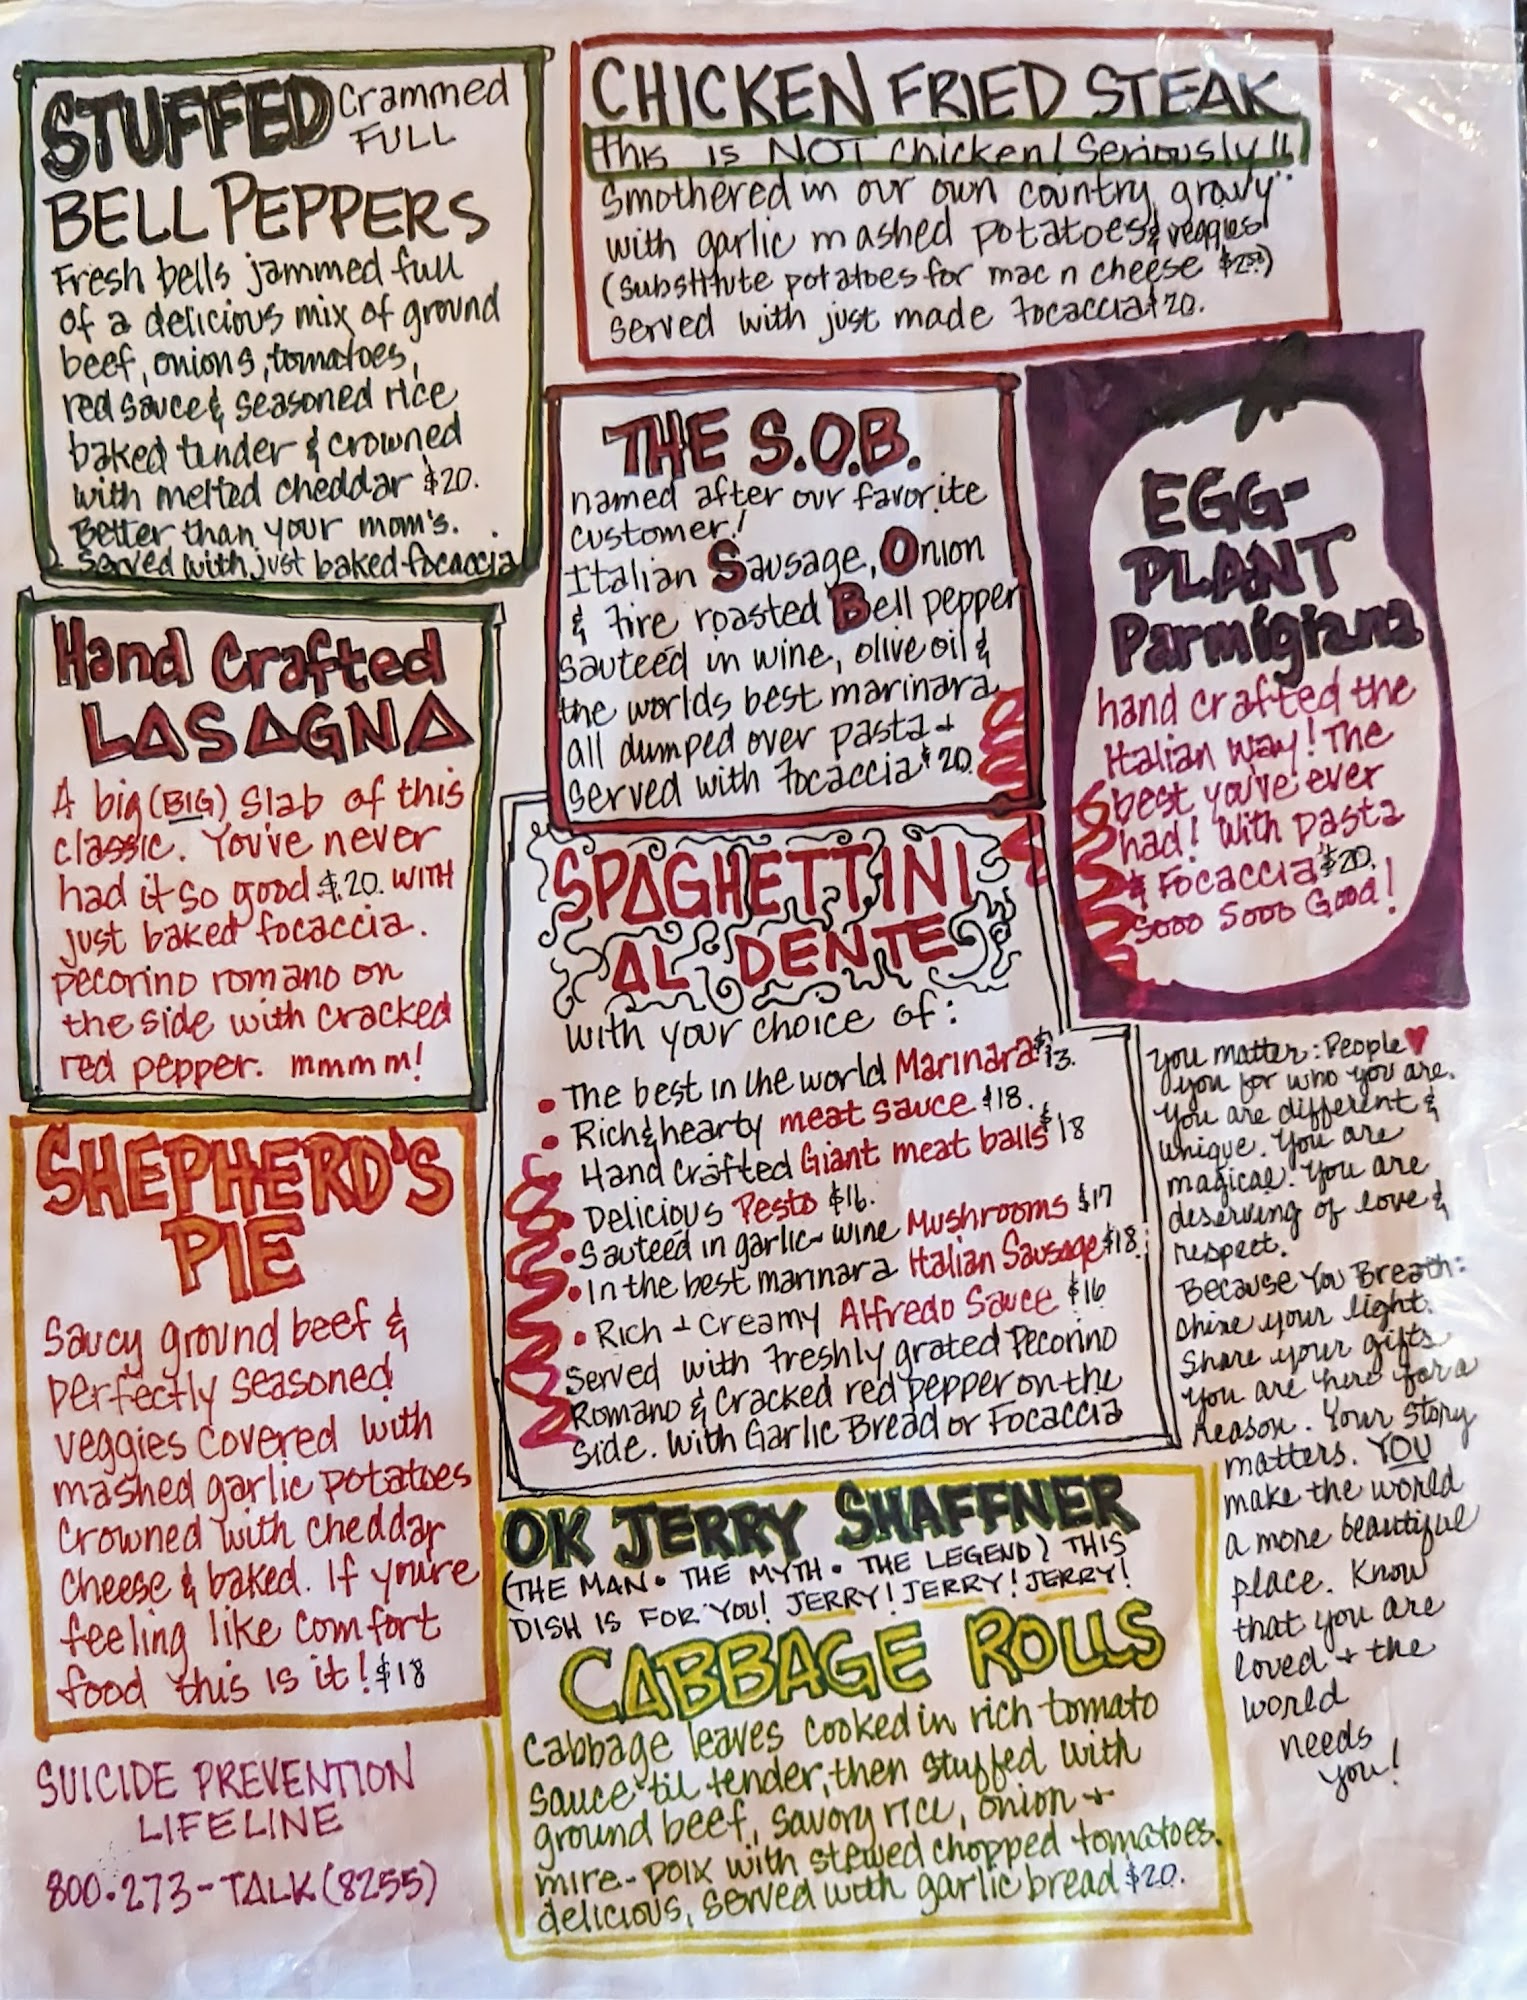 STUFFED Crammed
FULL
BELL PEPPERS
Fresh bells jammed full
of a delicious mix of ground
beef, onions, tomatoes,
red sauce & seasoned rice
baked tender & crowned
with melted cheddar $20.
Better than your mom's.
Served with just baked focaccia
CHICKEN FRIED STEAK
This is NOT chicken! Seriously!!
Smothered in our own country gravy
with garlic mashed potatoes & veggies
(substitute potatoes for mac n cheese $2.50)
served with just made focaccia $20.
THE S.O.B.
named after our favorite
customer!
Italian Sausage, Onion
& fire roasted Bell pepper
sauteed in wine, olive oil &
the worlds best marinara
all dumped over pasta +
served with focaccia $20.
EGG-
PLANT
Parmigiana
hand crafted the
Italian way! The
best you've ever
had! with pasta
& Focaccia $20.
Sooo Sooo Good!
Hand Crafted
LASAGNA
A big (BIG) slab of this
classic. You've never
had it so good $20. WITH
just baked focaccia.
pecorino romano on
the side with cracked
red pepper. mmmm!
SPAGHETTINI
AL DENTE
with your choice of:
• The best in the world Marinara $13.
• Rich & hearty meat sauce $18.
Hand Crafted Giant meat balls $18
• Delicious Pesto $16.
• Sauteed in garlic-wine Mushrooms $17
• In the best marinara Italian Sausage $18.
• Rich + Creamy Alfredo Sauce $16
Served with freshly grated Pecorino
Romano & Cracked red pepper on the
side. With Garlic Bread or Focaccia
you matter: People ♥
you for who you are.
You are different &
unique. You are
magical. You are
deserving of love &
respect.
Because You Breath:
shine your light.
Share your gifts
you are here for a
reason. Your story
matters. YOU
make the world
a more beautiful
place. Know
that you are
loved + the
world
needs
you!
SHEPHERD'S
PIE
Saucy ground beef &
perfectly seasoned
veggies covered with
mashed garlic potatoes
crowned with cheddar
cheese & baked. If you're
feeling like comfort
food this is it! $18
OK JERRY SHAFFNER
(THE MAN • THE MYTH • THE LEGEND) THIS
DISH IS FOR YOU! JERRY! JERRY! JERRY!
CABBAGE ROLLS
Cabbage leaves cooked in rich tomato
sauce 'til tender, then stuffed with
ground beef, savory rice, onion +
mire-poix with stewed chopped tomatoes.
delicious, served with garlic bread $20.
SUICIDE PREVENTION
LIFELINE
800•273-TALK (8255)